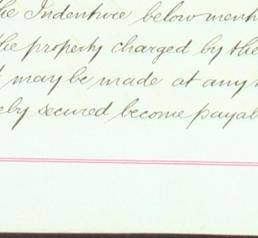 the Indenture below ment
the property charged by the
may be made at any t
eby secured become payab